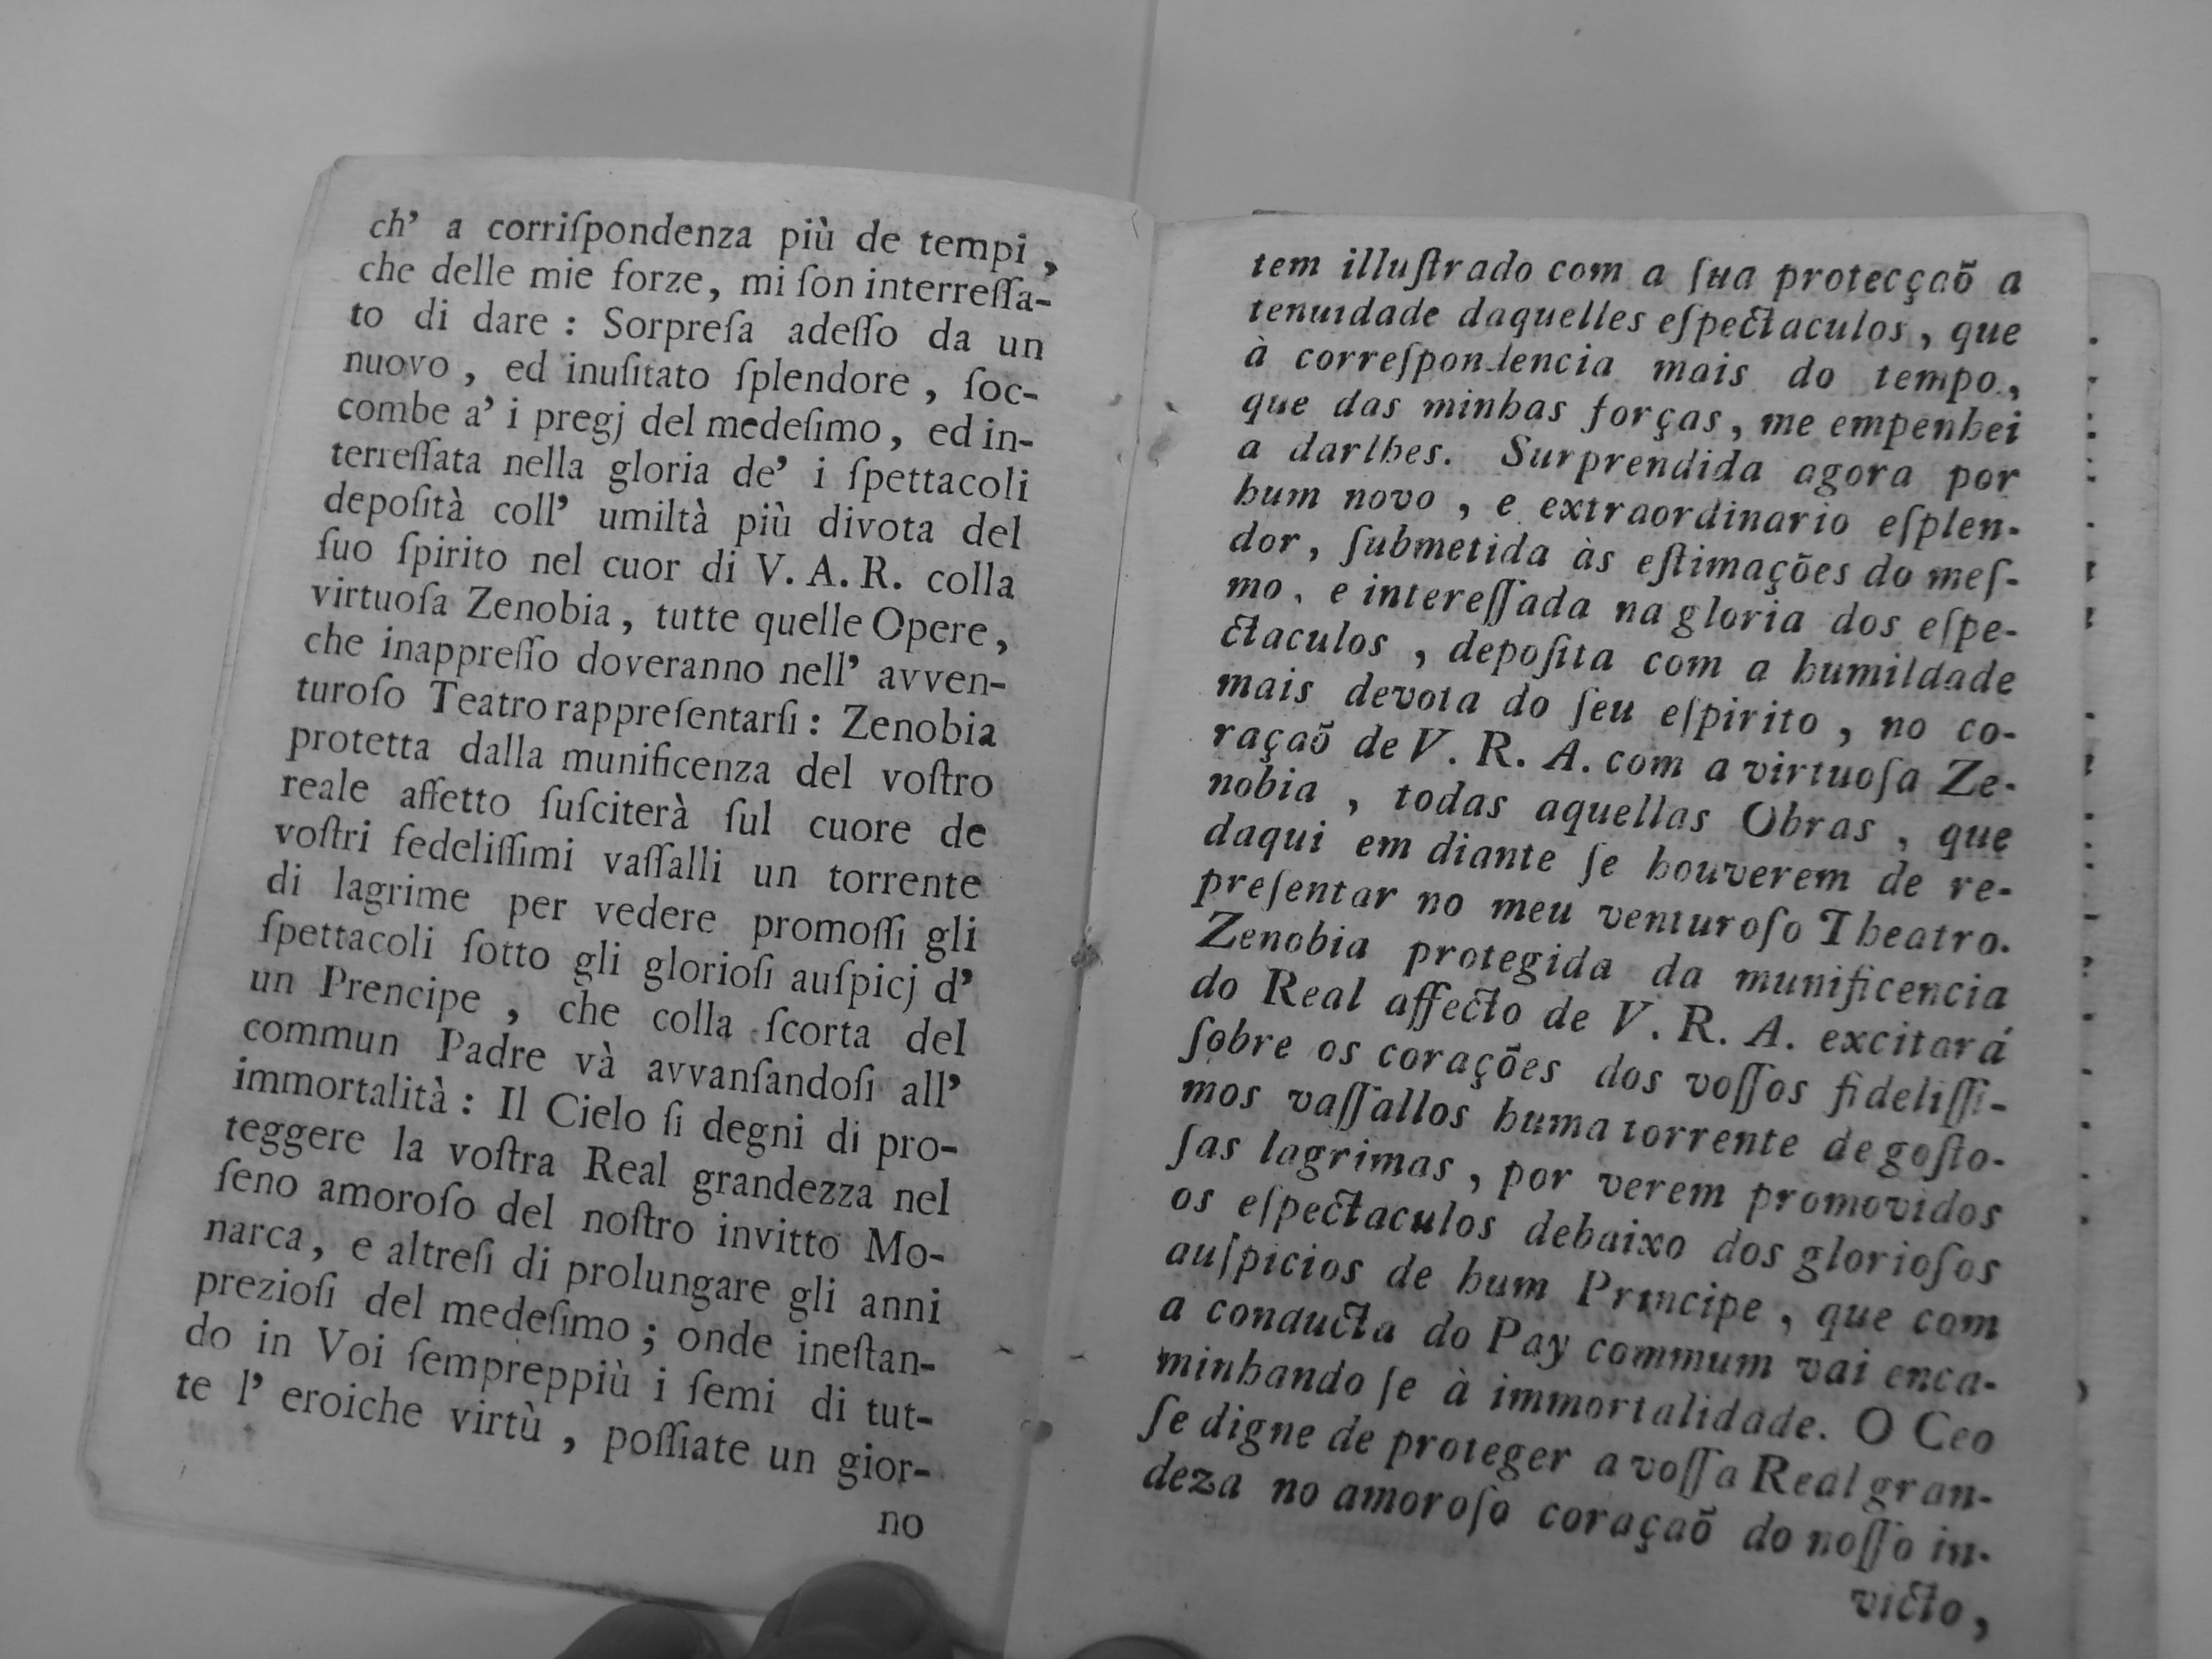 ch' a corriſpondenza più de tempi,
che delle mie forze, mi ſon interreſſa-
to di dare : Sorpreſa adeſſo da un
nuovo, ed inuſitato ſplendore, ſoc-
combe a' i pregj del medeſimo, ed in-
terreſſata nella gloria de' i ſpettacoli
depoſità coll' umiltà più divota del
ſuo ſpirito nel cuor di V. A. R. colla
virtuoſa Zenobia, tutte quelle Opere,
che inappreſſo doveranno nell' avven-
turoſo Teatro rappreſentarſi : Zenobia
protetta dalla munificenza del voſtro
reale affetto ſuſciterà ſul cuore de
voſtri fedeliſſimi vaſſalli un torrente
di lagrime per vedere promoſſi gli
ſpettacoli ſotto gli glorioſi auſpicj d'
un Prencipe, che colla ſcorta del
commun Padre và avvanſandoſi all'
immortalità : Il Cielo ſi degni di pro-
teggere la voſtra Real grandezza nel
ſeno amoroſo del noſtro invitto Mo-
narca, e altreſi di prolungare gli anni
prezioſi del medeſimo ; onde ineſtan-
do in Voi ſempreppiù i ſemi di tut-
te l' eroiche virtù, poſſiate un gior-
no
tem illuſtrado com a ſua protecçaõ a
tenuidade daquelles eſpectaculos, que
à correſpondencia mais do tempo,
que das minhas forças, me empenhei
a darlhes. Surprendida agora por
hum novo, e extraordinario eſplen-
dor, ſubmetida às eſtimações do meſ-
mo, e intereſſada na gloria dos eſpe-
ctaculos, depoſita com a humildade
mais devota do ſeu eſpirito, no co-
raçaõ de V. R. A. com a virtuoſa Ze-
nobia, todas aquellas Obras, que
daqui em diante ſe houverem de re-
preſentar no meu venturoſo Theatro.
Zenobia protegida da munificencia
do Real affecto de V. R. A. excitará
ſobre os corações dos voſſos fideliſſi-
mos vaſſallos huma torrente de goſto-
ſas lagrimas, por verem promovidos
os eſpectaculos debaixo dos glorioſos
auſpicios de hum Principe, que com
a conducta do Pay commum vai enca-
minhando ſe à immortalidade. O Ceo
ſe digne de proteger a voſſa Real gran-
deza no amoroſo coraçaõ do noſſo in-
victo,